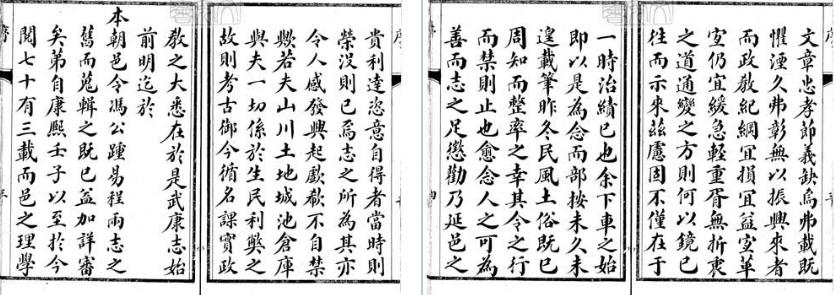 貴利達恣意自得者當時則
榮沒則已焉志之所為其亦
令人感發興起歔欷不自禁
歟若夫山川土地城池倉庫
與夫一切係於生民利弊之
故則考古御今循名課實政
教之大悉在於是武康志始
前明迄於
本朝邑令馮公踵易程兩志之
舊而蒐輯之既已益加詳審
矣第自康熙壬子以至於今
閱七十有三載而邑之理學
文章忠孝節義缺焉弗載既
懼湮久弗彰無以振興來者
而政教紀綱宜損宜益宜革
宜仍宜緩急輕重胥無折衷
之道通變之方則何以鏡已
往而示來茲慮固不僅在于
一時治績已也余下車之始
即以是為念而部按未久未
遑載筆昨冬民風土俗既已
周知而整率之幸其令之行
而禁則止也愈念人之可為
善而志之足懲勸乃延邑之